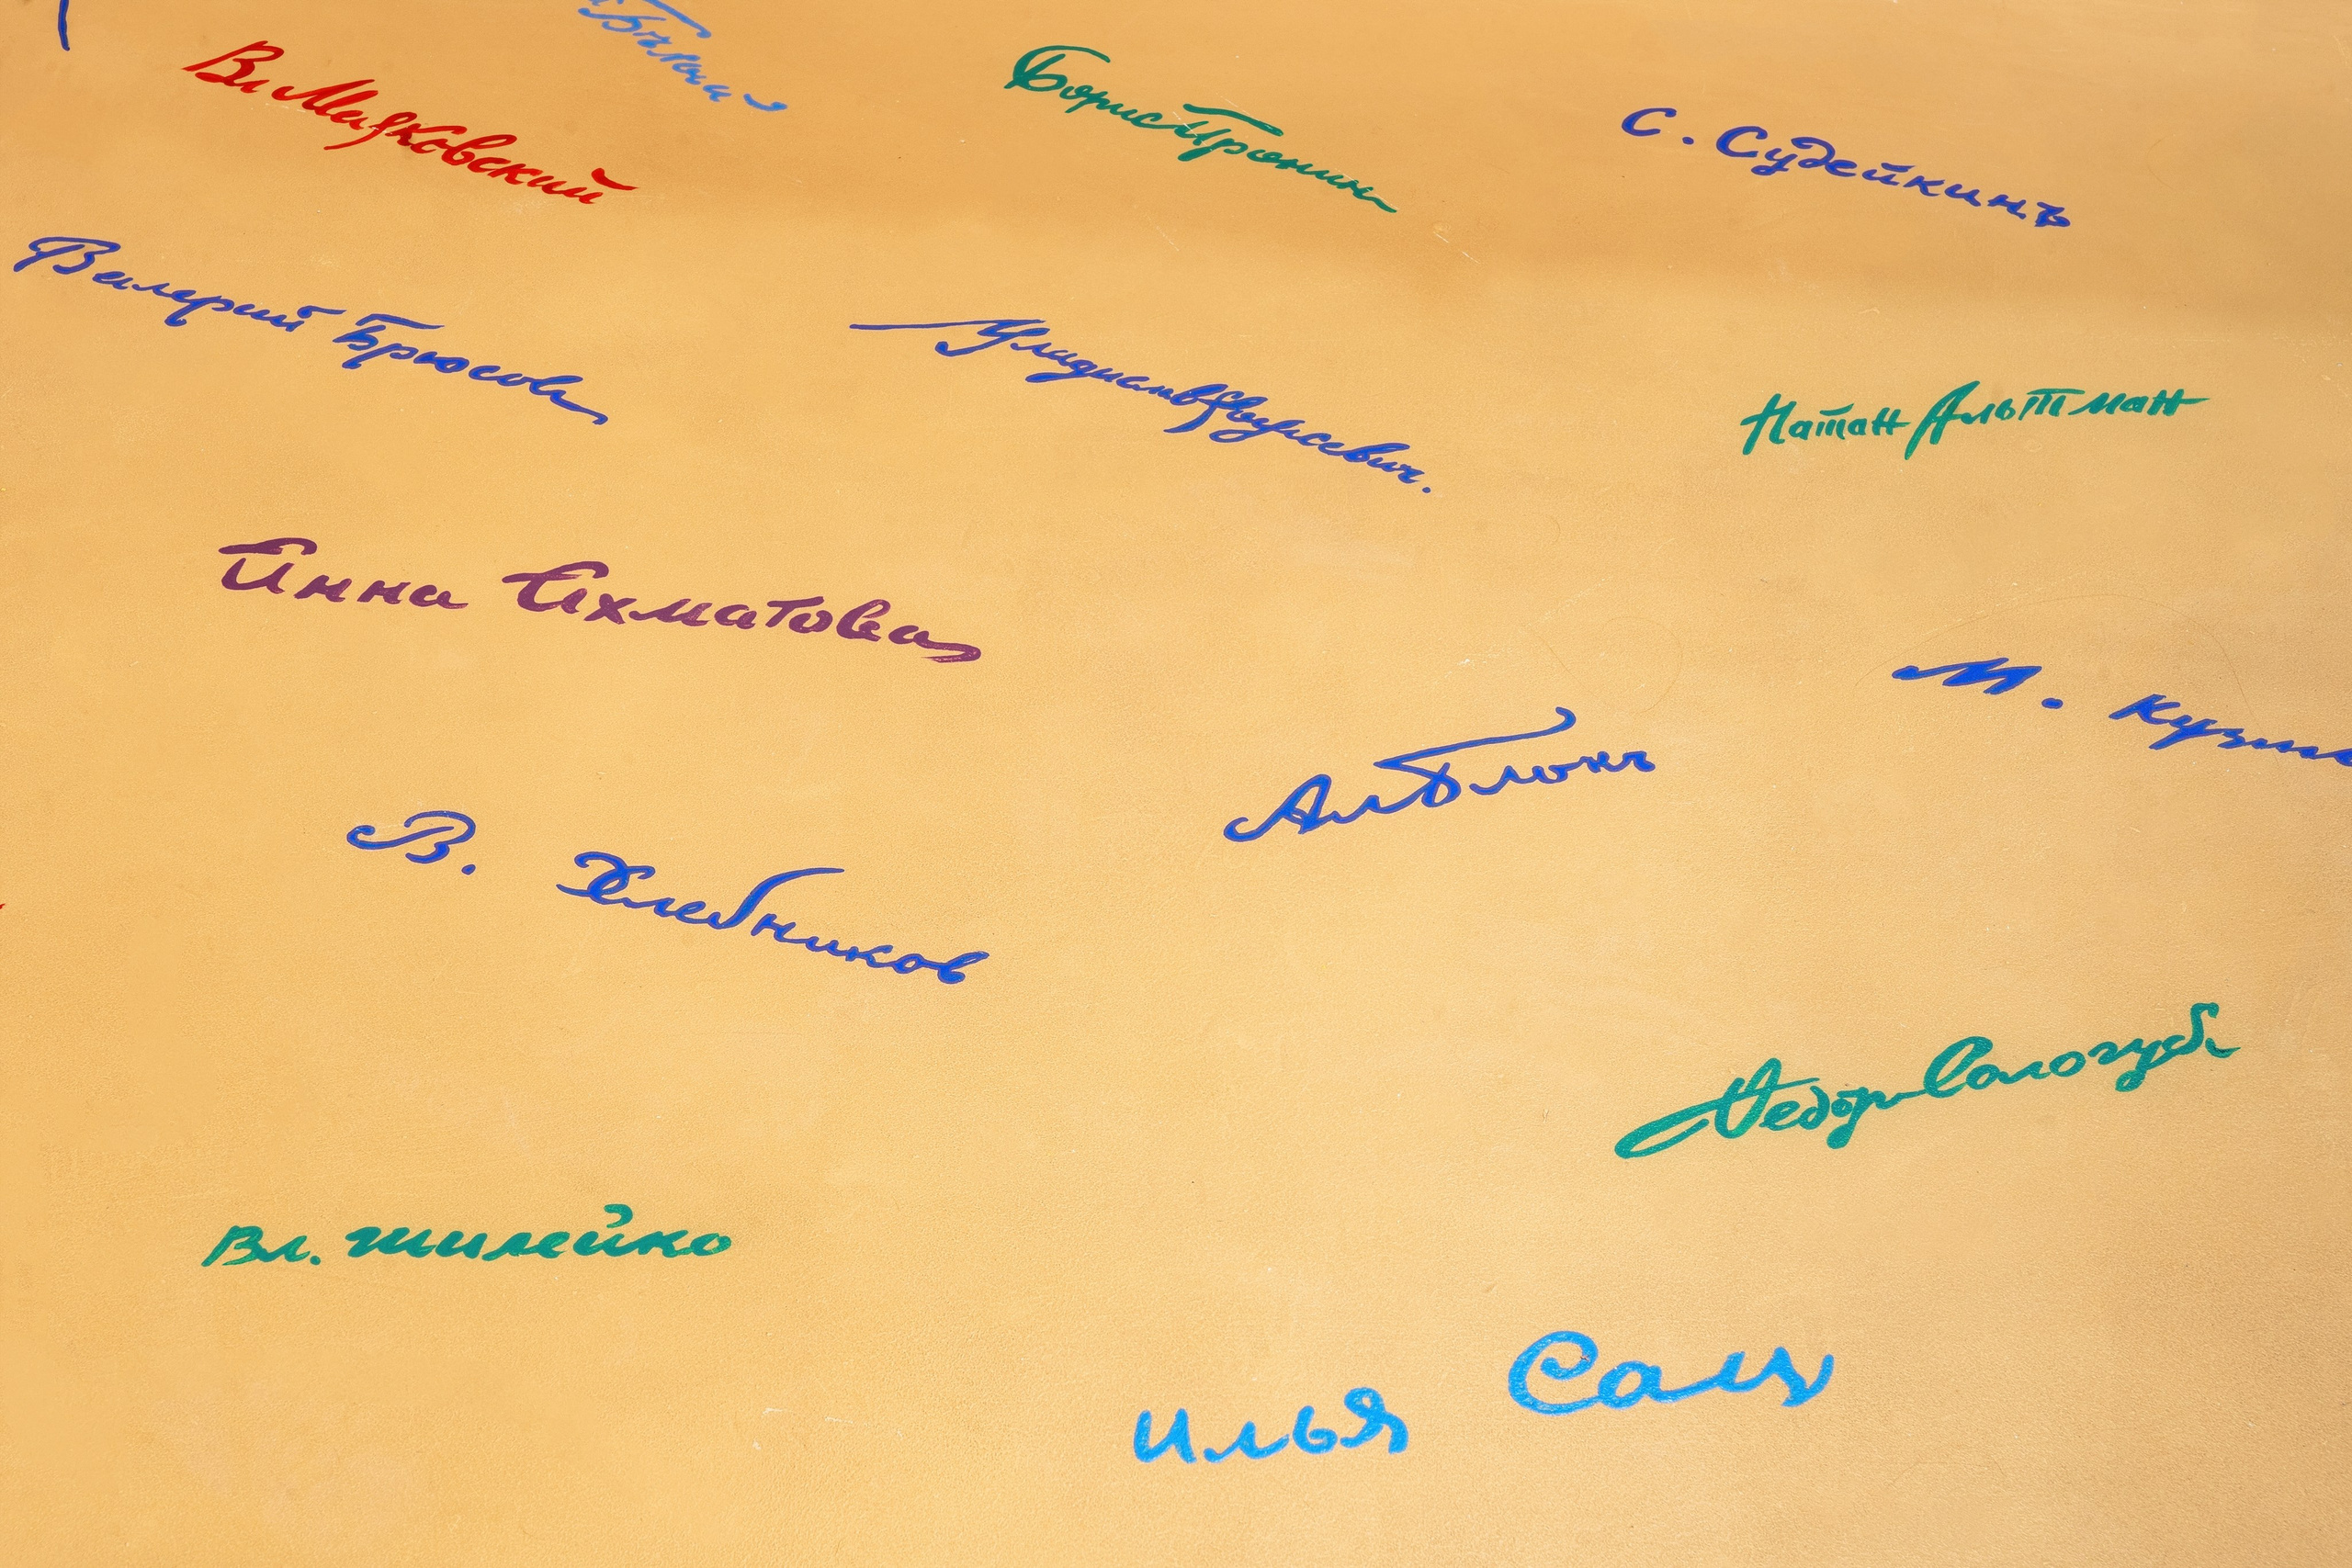 Бѣлый
Вл Маяковский
Борис Пронин
С. Судейкинъ
Валерий Брюсов
Натан Альтман
Анна Ахматова
М. Кузми
Ал Блокъ
В. Хлебников
Федор Сологуб
Вл. Шилейко
Илья Сац